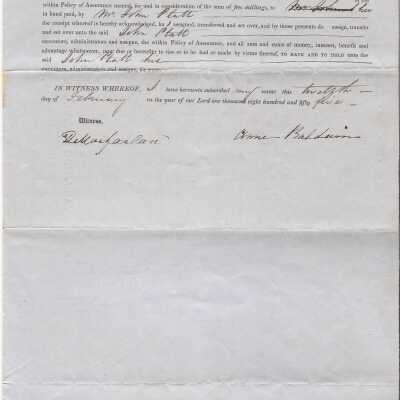 within Policy of Assurance named, for and in consideration of the sum of five shillings, to
in hand paid, by Mr John Platt
the receipt whereof is hereby acknowledged, ha assigned, transferred and set over, and by these presents do assign, transfer
and set over unto the said John Platt
executors, administrators and assigns, the within Policy of Assurance, and all sum and sums of money, interest, benefit and
advantage whatsoever, now due or hereafter to rise or to be had or made by virtue thereof, TO HAVE AND TO HOLD unto the
said John Platt his
executors, administrators and assigns, for ever.
IN WITNESS WHEREOF, I have hereunto subscribed my name this twelfth
day of February in the year of our Lord one thousand eight hundred and fifty five
Witness,
Baldwin